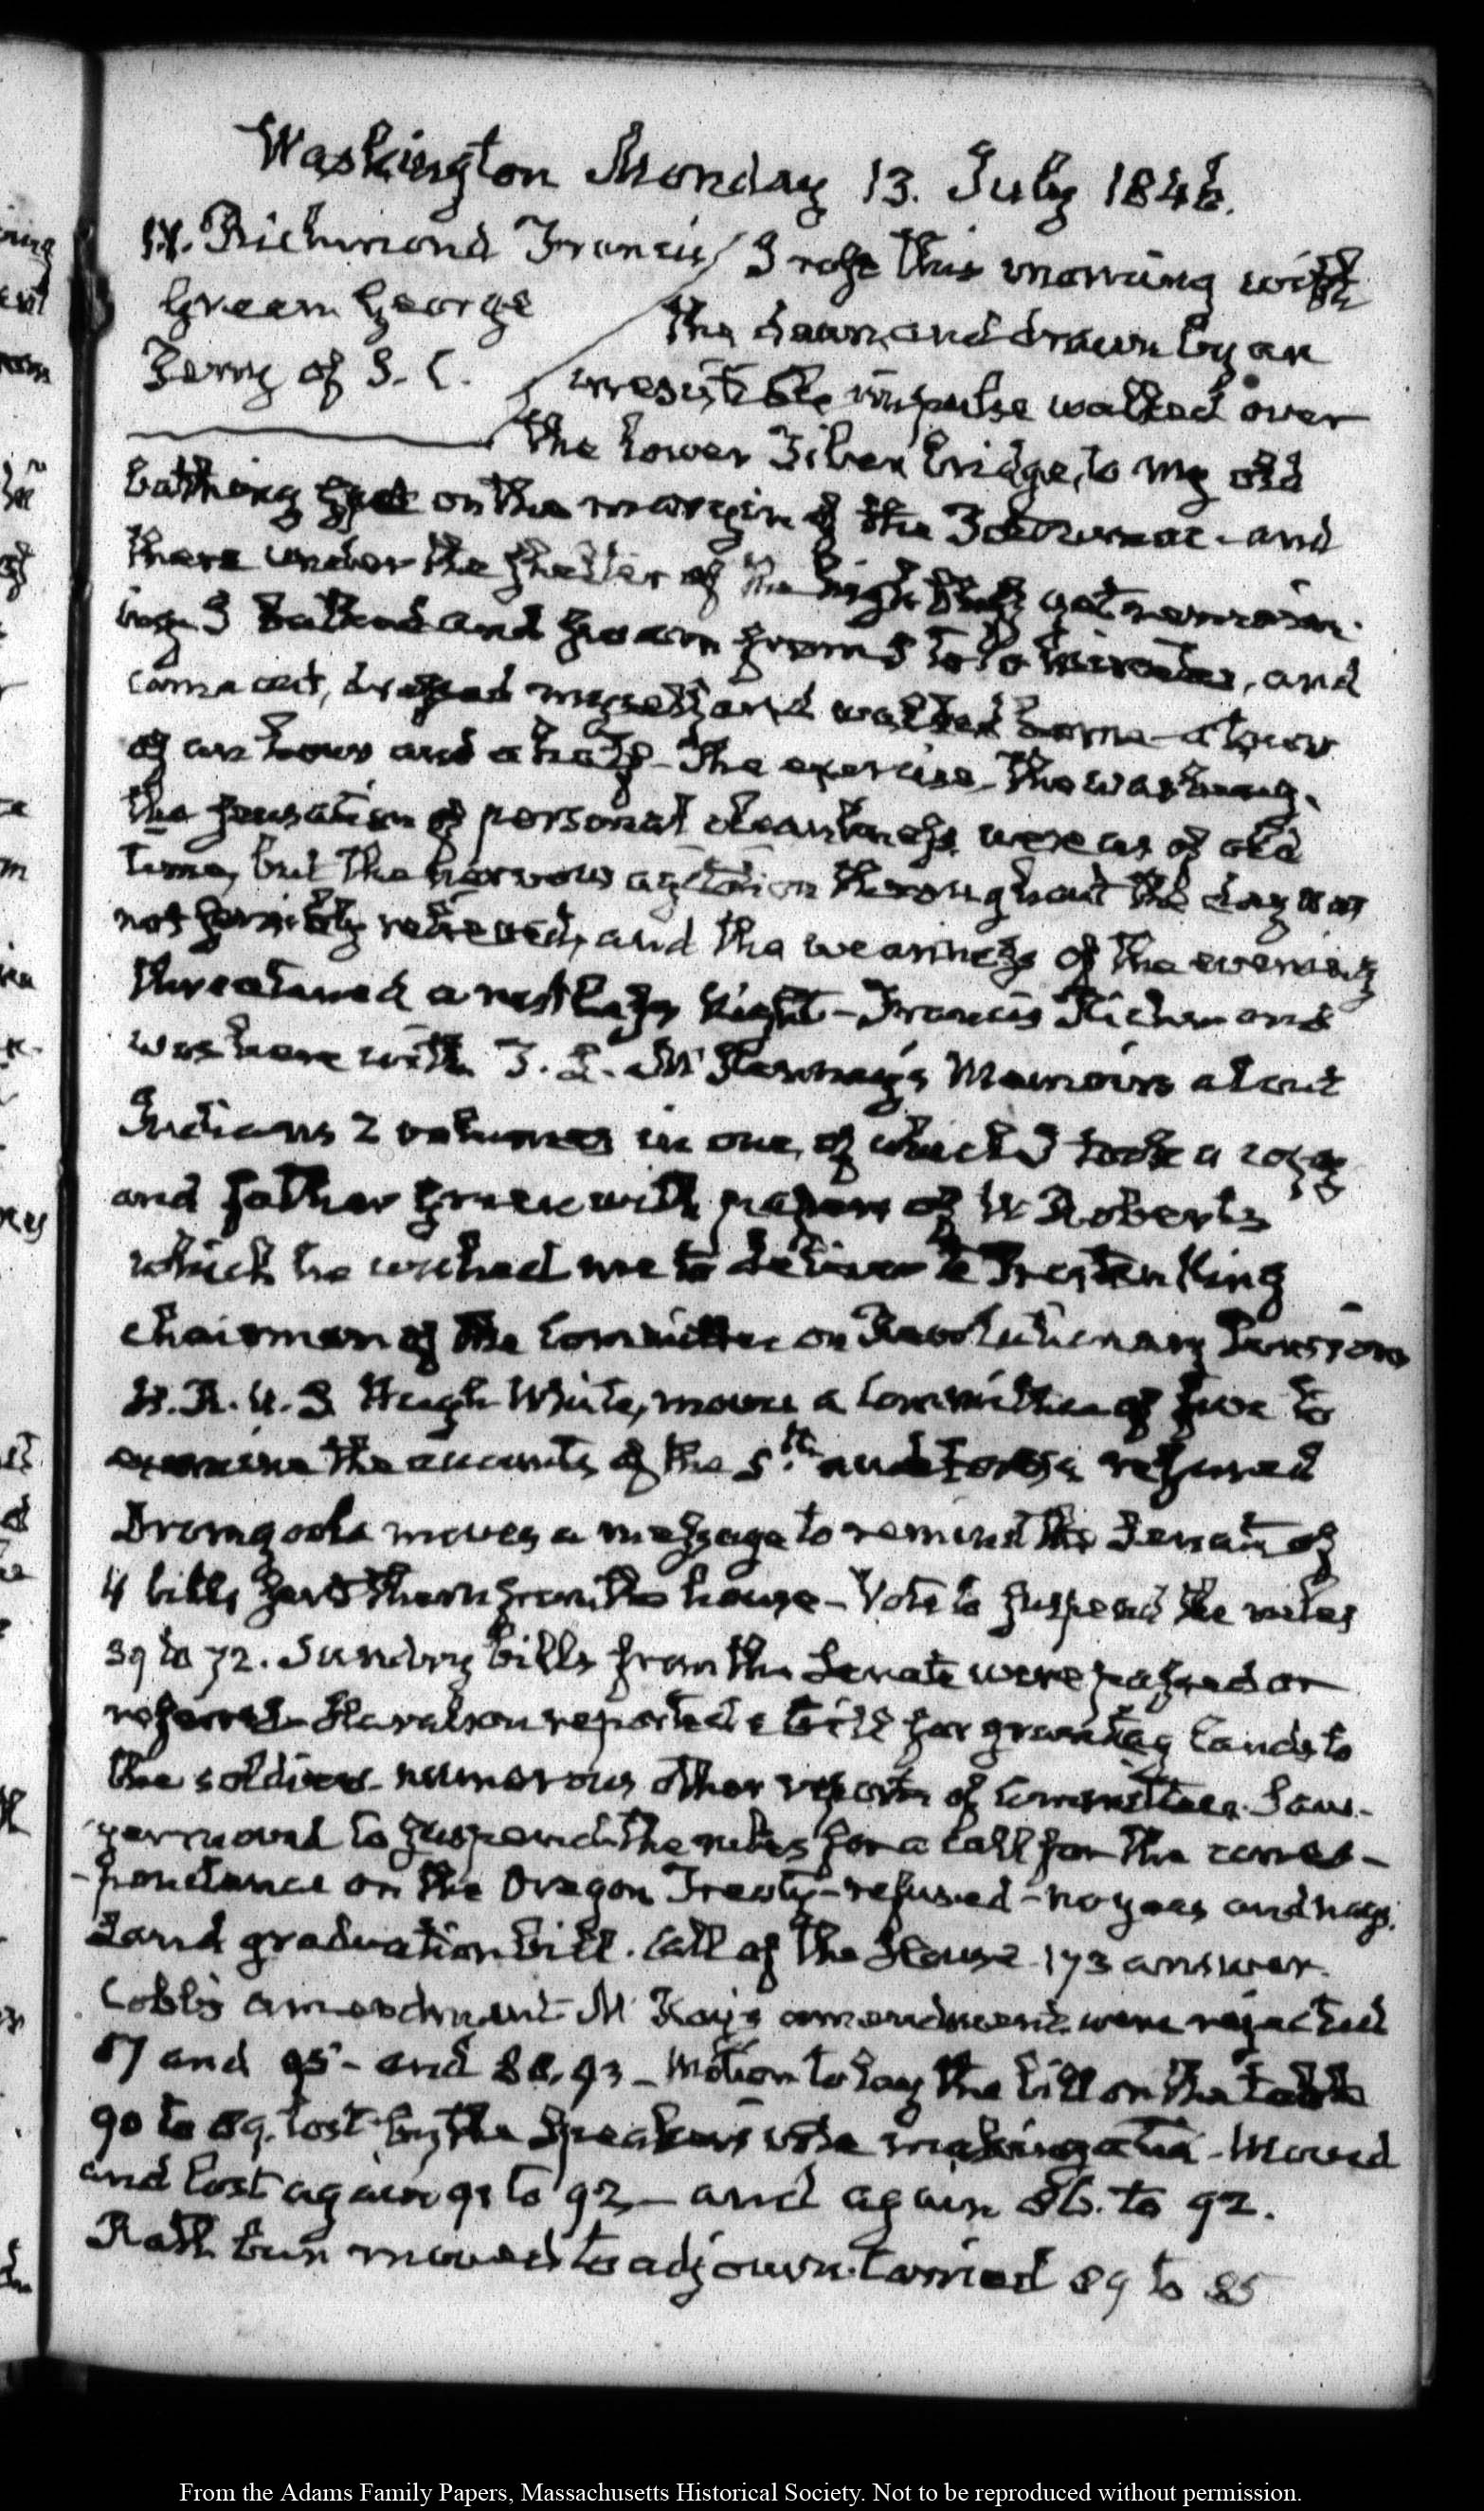 Washington Monday 13. July 1846.
IV. Richmond Francis
Green George
Perry of S. C.
I rose this morning with
the dawn, and drawn by an
irresistible impulse walked over
the lower Tiber bridge, to my old
bathing spot on the margin of the Potowmac - and
there under the shelter of the high bluff yet remain-
ing I bathed and swam from 5 to 10 minutes, and
came out, dressed myself and walked home - a tour
of an hour and a half - The exercise - the washing,
the sensation of personal cleanliness were as of old
time, but the nervous agitation throughout the day was
not sensibly relieved, and the weariness of the evening
threatened a restless Night - Francis Richmond
was here with T. L. McKenney's Memoirs about
Indians 2 volumes in one, of which I took a copy
and father Green with papers of W Roberts
which he wished me to deliver to Preston King
chairman of the Committee on Revolutionary Pensions
H. R. U. S. Hugh White, moves a Committee of five to
examine the accounts of the 5th auditor refused
Dromgoole moves a message to remind the Senate of
4 bills sent them from the house - Vote to suspend the rules
39 to 72. Sundry bills from the Senate were passed or
referred - Haralson reported a bill for granting lands to
the soldiers - numerous other reports of Committees. Saw-
yer moved to suspend the rules for a call for the corres-
-pondence on the Oregon Treaty - refused - no yeas and nays.
Land graduation bill. Call of the House 173 answer.
Cobb's amendment McKay's amendment were rejected
87 and 95 - and 88, 93 - Motion to lay the bill on the table
90 to 89. lost by the Speakers vote making a tie - Moved
and lost again 91 to 92 - and again 86. to 92.
Rathbun moved to adjourn. carried 89 to 85
From the Adams Family Papers, Massachusetts Historical Society. Not to be reproduced without permission.